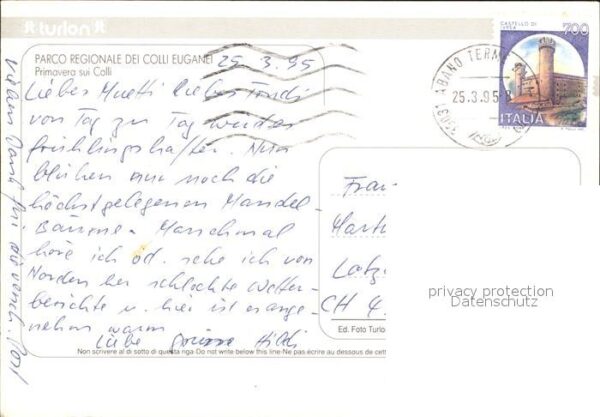 turlon
PARCO REGIONALE DEI COLLI EUGANEI
Primavera sui Colli
25. 3. 95
Liebes Muetti liebes
von Tag zu Tag wird es
frühlingshafter. Nun
blühen nur noch die
höchstgelegenen Mandel-
Bäume. Manchmal
höre ich od. sehe ich von
Norden her schlechte Wetter-
berichte u. hier ist es ange-
nehm warm
Liebe Grüsse Hildi
vielen Dank für die Post
CASTELLO DI IVREA
700
ITALIA
35031 ABANO TERME
25.3.95
Frau
Martha
CH 4
privacy protection
Datenschutz
Ed. Foto Turlo
Non scrivere al di sotto di questa riga-Do not write below this line-Ne pas écrire au dessous de cette